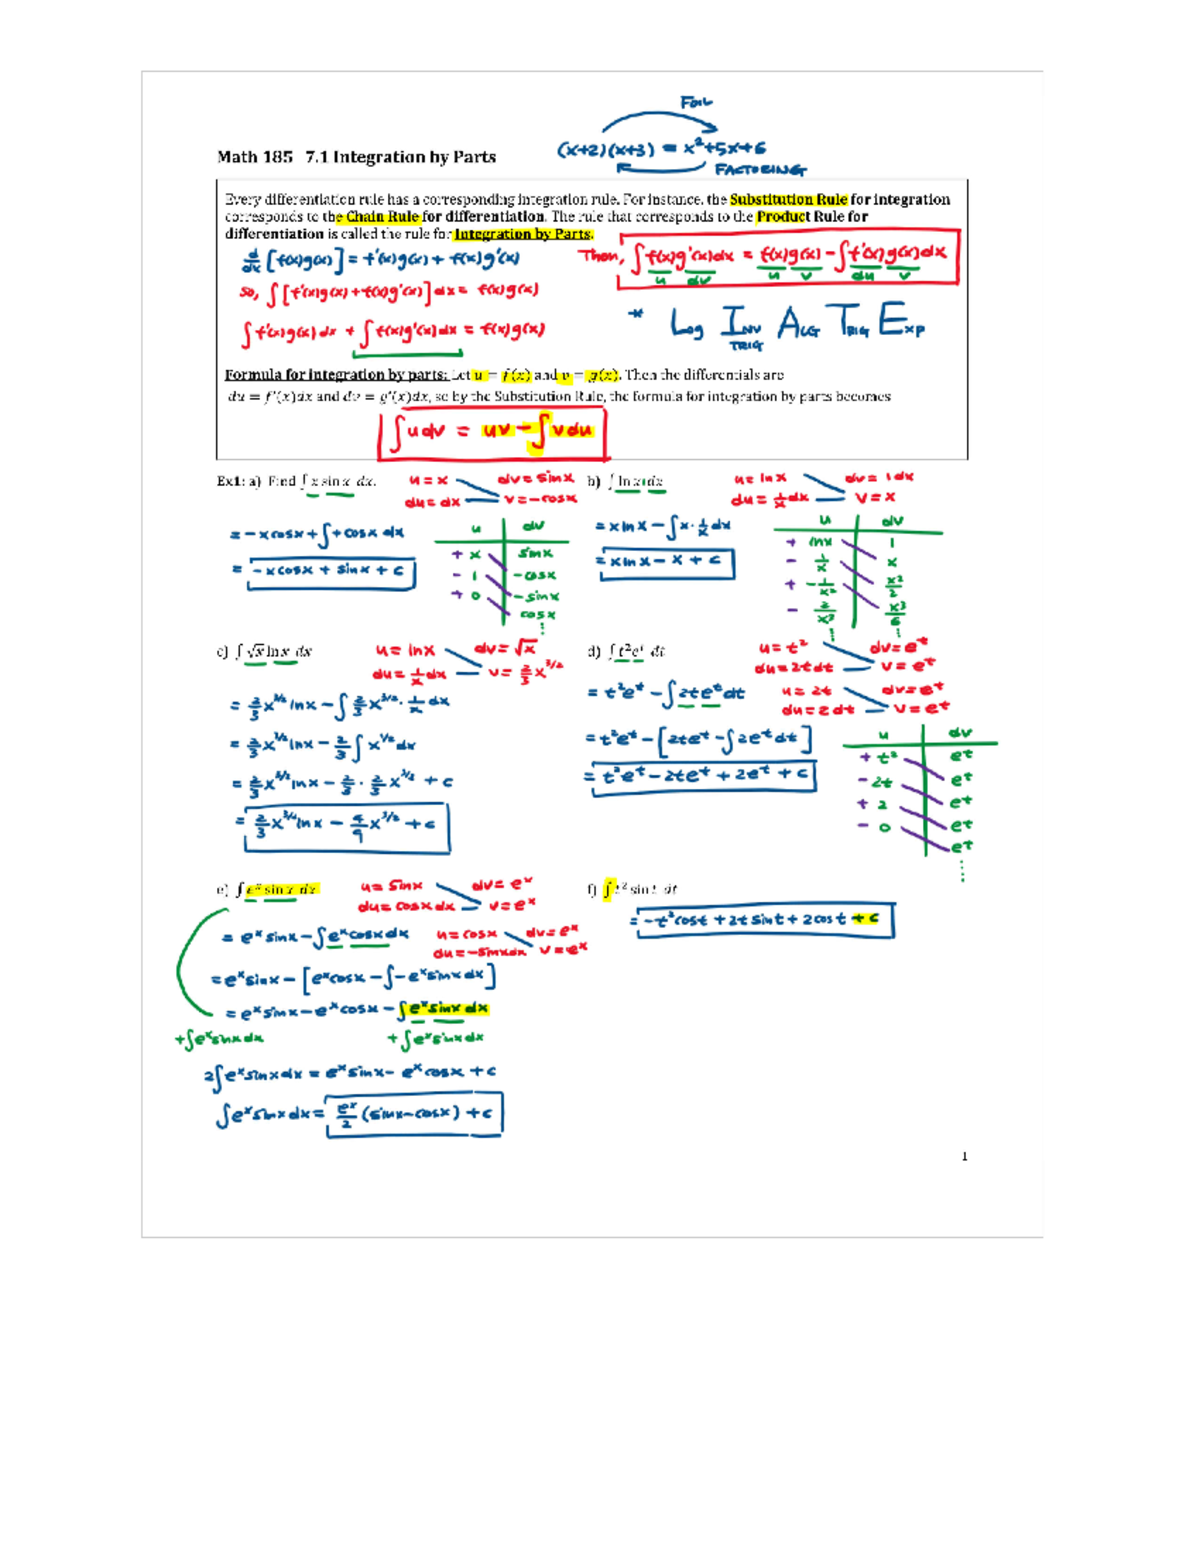 FOIL
(x+2)(x+3) = x²+5x+6
FACTORING
Math 185 7.1 Integration by Parts
Every differentiation rule has a corresponding integration rule. For instance, the Substitution Rule for integration
corresponds to the Chain Rule for differentiation. The rule that corresponds to the Product Rule for
differentiation is called the rule for Integration by Parts.
d/dx [f(x)g(x)] = f'(x)g(x) + f(x)g'(x)
Then, ∫f(x)g'(x)dx = f(x)g(x) - ∫f'(x)g(x)dx
u dv u v du v
So, ∫[f'(x)g(x) + f(x)g'(x)]dx = f(x)g(x)
* Log Inv Alg Trig Exp
TRIG
∫f'(x)g(x)dx + ∫f(x)g'(x)dx = f(x)g(x)
Formula for integration by parts: Let u = f(x) and v = g(x). Then the differentials are
du = f'(x)dx and dv = g'(x)dx, so by the Substitution Rule, the formula for integration by parts becomes
∫udv = uv - ∫vdu
Ex1: a) Find ∫x sin x dx.
u = x dv = sinx
du = dx v = -cosx
= -xcosx + ∫+cosx dx
= -xcosx + sinx + c
u dv
+ x sinx
- 1 -cosx
+ 0 -sinx
cosx
b) ∫ln x dx
u = lnx dv = 1dx
du = 1/x dx v = x
= xlnx - ∫x·1/x dx
= xlnx - x + c
u dv
+ lnx 1
- 1/x x
+ -1/x² x²/2
- 2/x³ x³/6
c) ∫√x ln x dx
u = lnx dv = √x
du = 1/x dx v = 2/3 x^3/2
= 2/3 x^3/2 lnx - ∫2/3 x^3/2 · 1/x dx
= 2/3 x^3/2 lnx - 2/3 ∫x^1/2 dx
= 2/3 x^3/2 lnx - 2/3 · 2/3 x^3/2 + c
= 2/3 x^3/2 lnx - 4/9 x^3/2 + c
d) ∫t²eᵗ dt
u = t² dv = eᵗ
du = 2tdt v = eᵗ
= t²eᵗ - ∫2teᵗdt
u = 2t dv = eᵗ
du = 2dt v = eᵗ
= t²eᵗ - [2teᵗ - ∫2eᵗdt]
= t²eᵗ - 2teᵗ + 2eᵗ + c
u dv
+ t² eᵗ
- 2t eᵗ
+ 2 eᵗ
- 0 eᵗ
eᵗ
e) ∫eˣ sin x dx
u = sinx dv = eˣ
du = cosxdx v = eˣ
= eˣsinx - ∫eˣcosxdx
u = cosx dv = eˣ
du = -sinxdx v = eˣ
= eˣsinx - [eˣcosx - ∫-eˣsinxdx]
= eˣsinx - eˣcosx - ∫eˣsinxdx
+∫eˣsinxdx +∫eˣsinxdx
2∫eˣsinxdx = eˣsinx - eˣcosx + c
∫eˣsinxdx = eˣ/2 (sinx - cosx) + c
f) ∫t² sin t dt
= -t²cost + 2tsint + 2cost + c
1